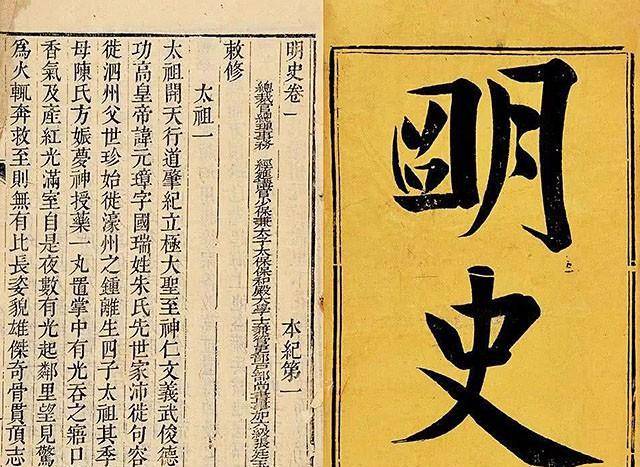 明史
明史卷一 本紀第一
總裁官總理事務 經筵講官少保兼太子太保保和殿大學士兼管吏部戶部尚書事加六級張廷玉
敕修
太祖一
太祖開天行道肇紀立極大聖至神仁文義武俊德
功高皇帝諱元璋字國瑞姓朱氏先世家沛徙句容
徙泗州父世珍始徙濠州之鍾離生四子太祖其季
母陳氏方娠夢神授藥一丸置掌中有光吞之寤口
香氣及產紅光滿室自是夜數有光起鄰里望見驚
爲火輒奔救至則無有比長姿貌雄傑奇骨貫頂志